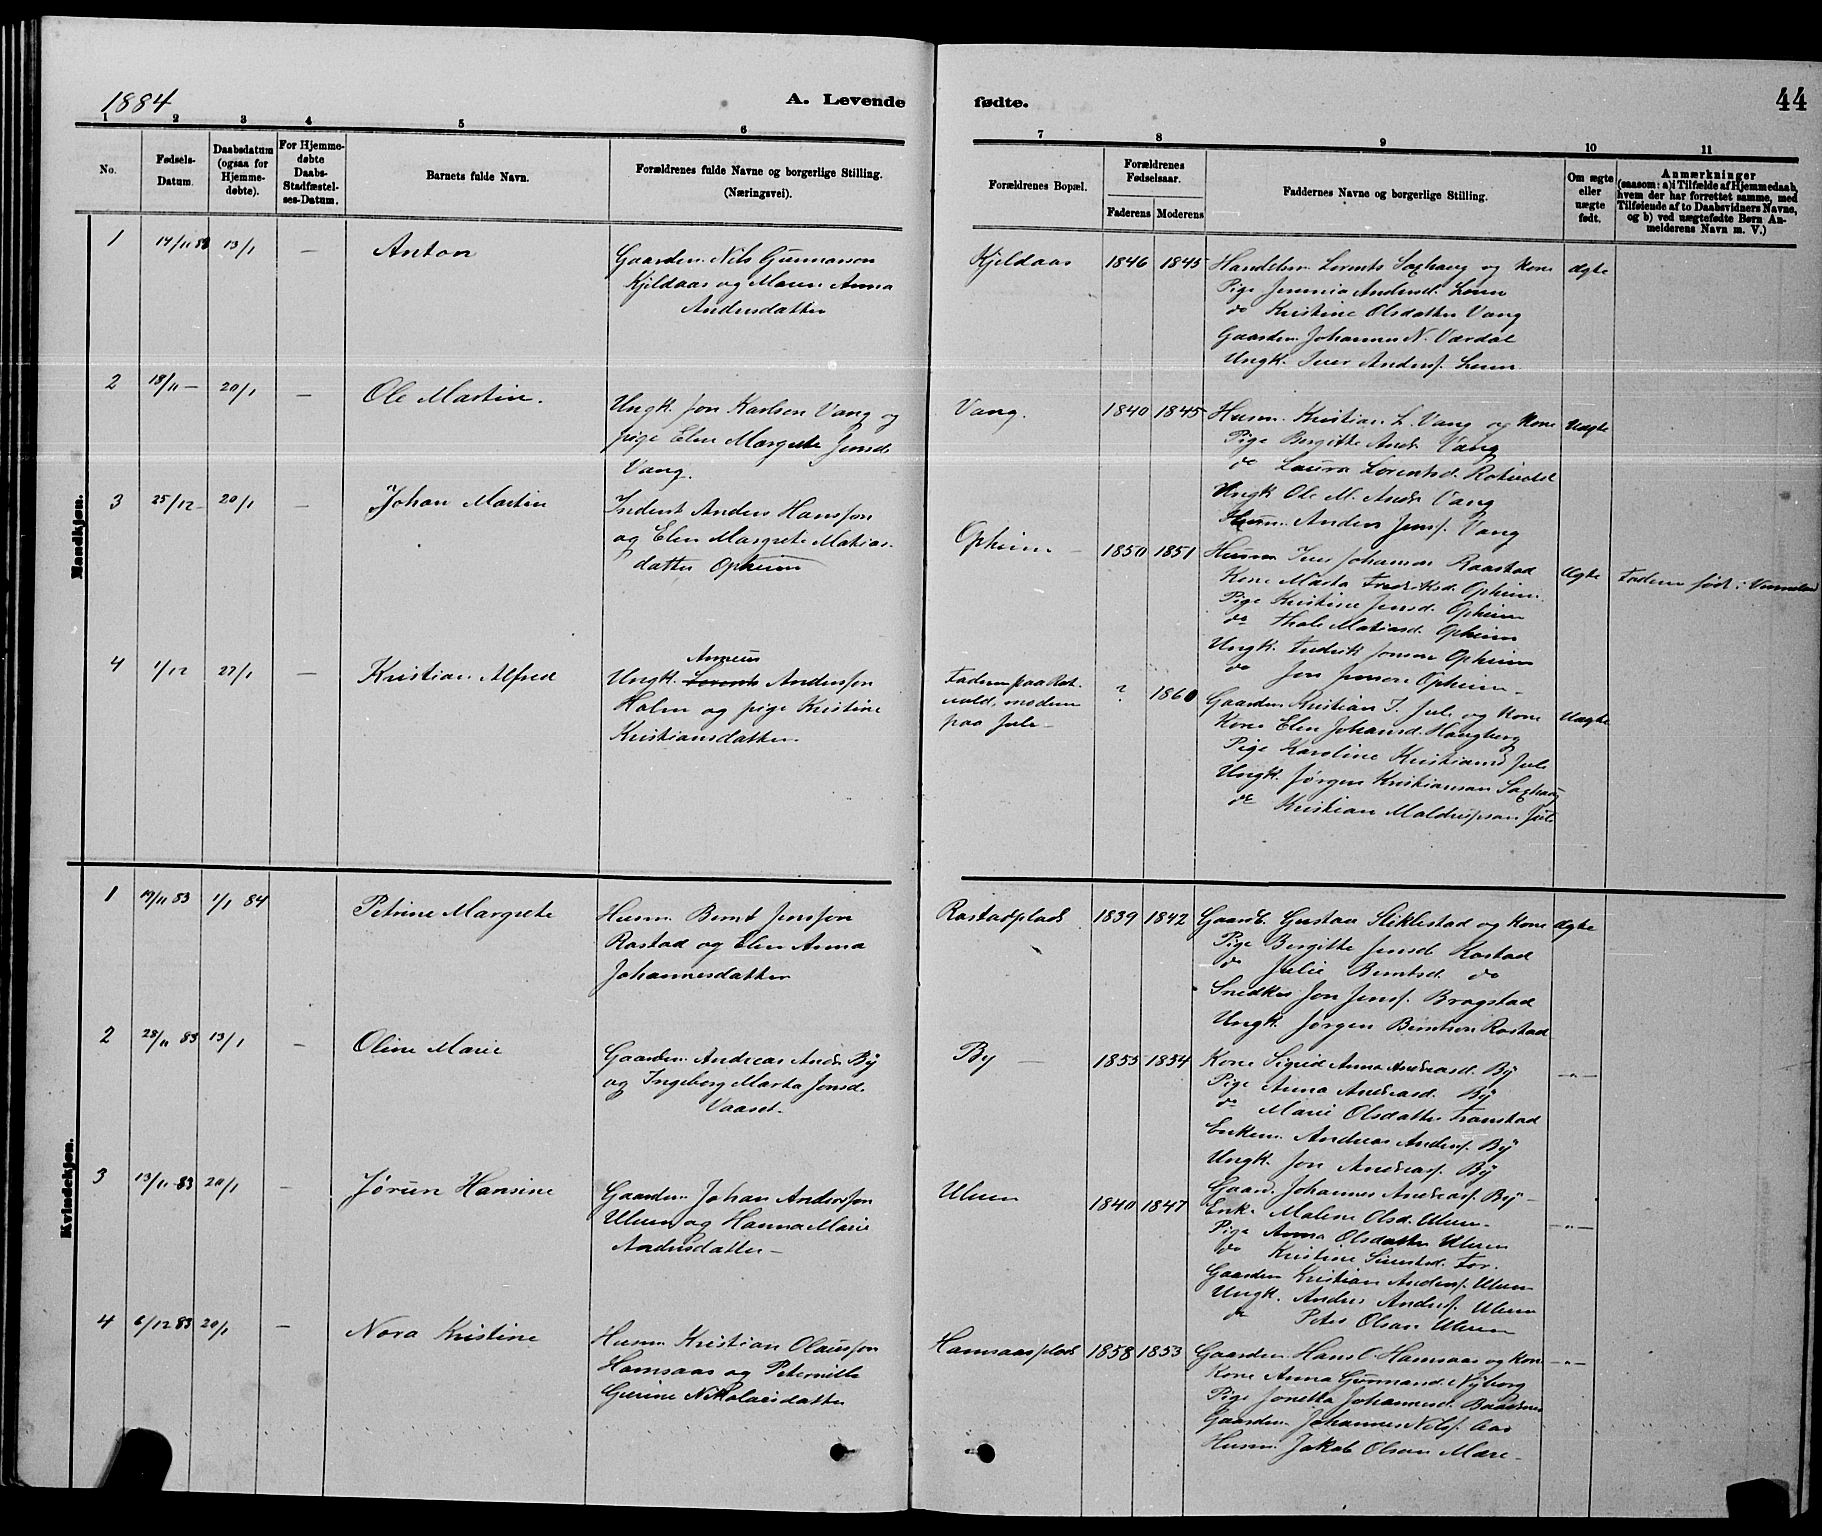 1884
A. Levende fødte.
44
1 2 3 4 5 6 7 8 9 10 11
No.
Fødsels-Datum.
Daabsdatum (ogsaa for Hjemmedøbte).
For Hjemmedøbte Daabs-Stadfæstelses-Datum.
Barnets fulde Navn.
Forældrenes fulde Navne og borgerlige Stilling. (Næringsvei).
Forældrenes Bopæl.
Forældrenes Fødselsaar.
Faderens Moderens
Faddernes Navne og borgerlige Stilling.
Om ægte eller uægte født.
Anmærkninger (saasom: a) i Tilfælde af Hjemmedaab, hvem der har forrettet samme, med Tilføiende af to Daabsvidners Navne, og b) ved uægtefødte Børn Anmelderens Navn m. V.)
Mandkjøn.
1 14/11 83 13/1 — Anton
Gaardm. Nils Gunnarson
Kjeldaas og Maren Anna
Andersdatter
Kjeldaas 1846 1845
Handelsm. Lorents Saxhaug og Kone
Pige Jennia Andersd. Leun
do Kristine Olsdatter Vang
Gaardm. Johannes N. Værdal
Ungk. Iver Andersf. Leun
ægte
2 18/11 — 20/1 — Ole Martin.
Ungk. Jon Karlsen Vang og
pige Elen Margrete Jensd.
Vang.
Vang. 1840 1845
Husm. Kristian L. Vang og Kone
Pige Bergitte Ands. Vang
do Laura Lorentsd. Rotvold
Ungk Ole M. Ands. Vang
Husm. Anders Jensf. Vang
Uægte
3 25/12 — 20/1 — Johan Martin
Inderst Anders Hansson
og Elen Margrete Matias-
datter Opheim
Opheim — 1850 1851
Husm Iver Johannesn Raastad
Kone Marta Fredriksd. Opheim.
Pige Kristine Jensd. Opheim
do Thale Matiasd. Opheim
Ungk. Fredrik Jonson Opheim
do Jon Jonson Opheim —
Ægte
Faderen født i
4 1/12 27/1 — Kristian Alfred
Arneus
Ungk. Lorents Andersson
Holm og pige Kristine
Kristiansdatter.
Faderen paa Rot-
vold, moderen
paa Jule —
? 1860
Gaardm Kristian T. Jule og Kone
Kone Elen Johansd. Haugberg
Pige Karoline Kristiansd Jule
Ungk. Jørgen Kristiansen Saxhaug
do Kristian Jule
Uægte
Kvindekjøn.
1 19/11 83 1/1 84 Petrine Margrete
Husm Bernt Jensson
Rostad og Elen Anna
Johannesdatter
Rostadplads 1839 1842
Gaardb. Gustav Stiklestad og Kone
Pige Bergitte Jensd. Rostad
do Julie Berntsd. do
Snedker Jon Jensf. Bragstad
Ungk. Jørgen Berntsen Rostad
Ægte
2 28/11 83 13/1 — Oline Marie
Gaardm. Andreas Ands. By
og Ingeborg Marta Jonsd.
Vaaset.
By — 1853 1854
Kone Sigrid Anna Andreasd. By
Pige Anna Andreasd. By
do Marie Olsdatter Tronstad
Enkem. Andreas Andersf. By
Ungk. Jon Andreasf. By
Gaard. Johannes Andreasf. By —
— „ —
3 13/11 83 20/1 — Jørun Hansine
Gaardm. Johan Andersson
Ulven og Hanna Marie
Andersdatter —
Ulven 1840 1847
Enke Malene Olsd. Ulven —
Pige Anna Olsdatter Ulven
do Kristine
Gaardm Kristian Andersf. Ulven
Ungk. Anders Andersf. Ulven
do Peter Olson Ulven
— „ —
4 6/12 83 20/1 — Nora Kristine
Husm Kristian Olausson
Hamsaas og Peternille
Gurine Nikolaisdatter
Hamsaasplads 1858 1853
Gaardm. Hans O. Hamsaas og Kone
Kone Anna Gunnarsd. Nyborg
Pige Jonetta Johannesd.
Gaardm. Johannes Nilsf. Aas
Husm. Jakob Olsen Mære —
— „ —